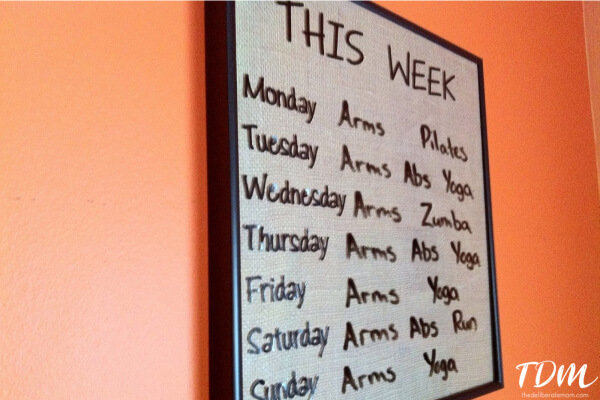 THIS WEEK
Monday Arms Pilates
Tuesday Arms Abs Yoga
Wednesday Arms Zumba
Thursday Arms Abs Yoga
Friday Arms Yoga
Saturday Arms Abs Run
Sunday Arms Yoga
TDM
thedeliberatemom.com